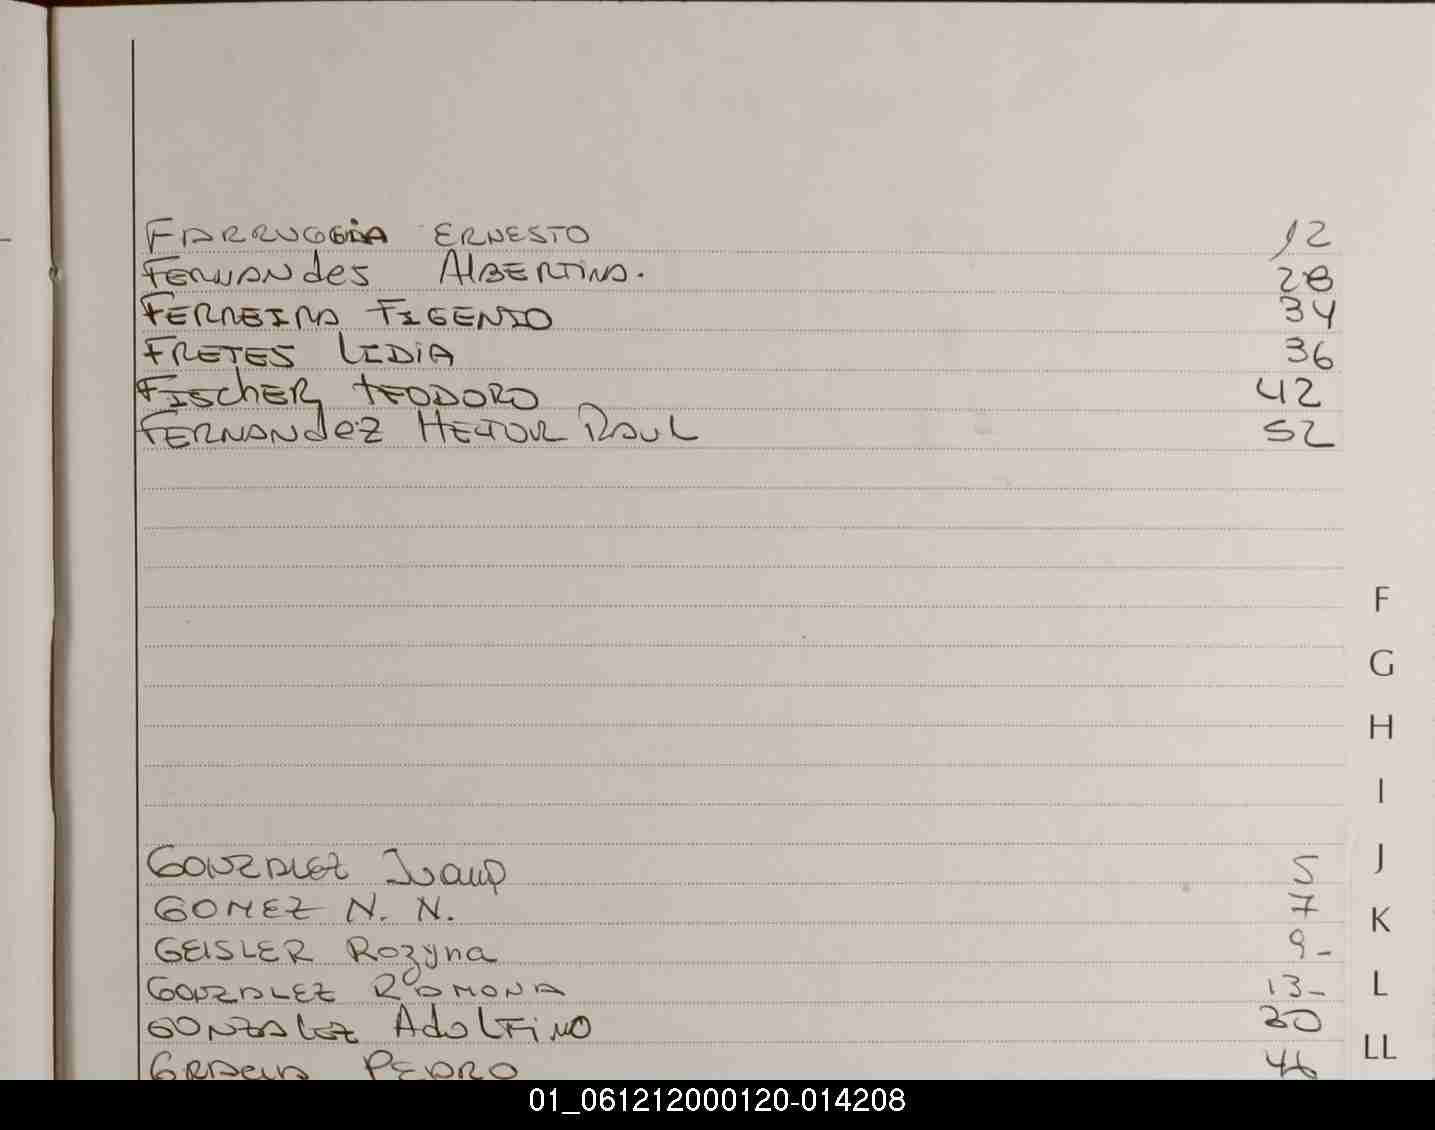 FARRUGGIA ERNESTO 12
FERNANdes AlBERTINA. 28
FERREIRA FIGENIO 34
FRETES LIDIA 36
FISChER TEODORO 42
FERNANdeZ HECTOR RAUL 52
F
G
H
I
GONZALEZ Juan P 5
J
GOMEZ N. N. 7
K
GEISLER Rozyna 9-
GONZALEZ RAMONA 13-
L
GONZALEZ AdOLFiNO 30
PEDRO 46
LL
01_061212000120-014208